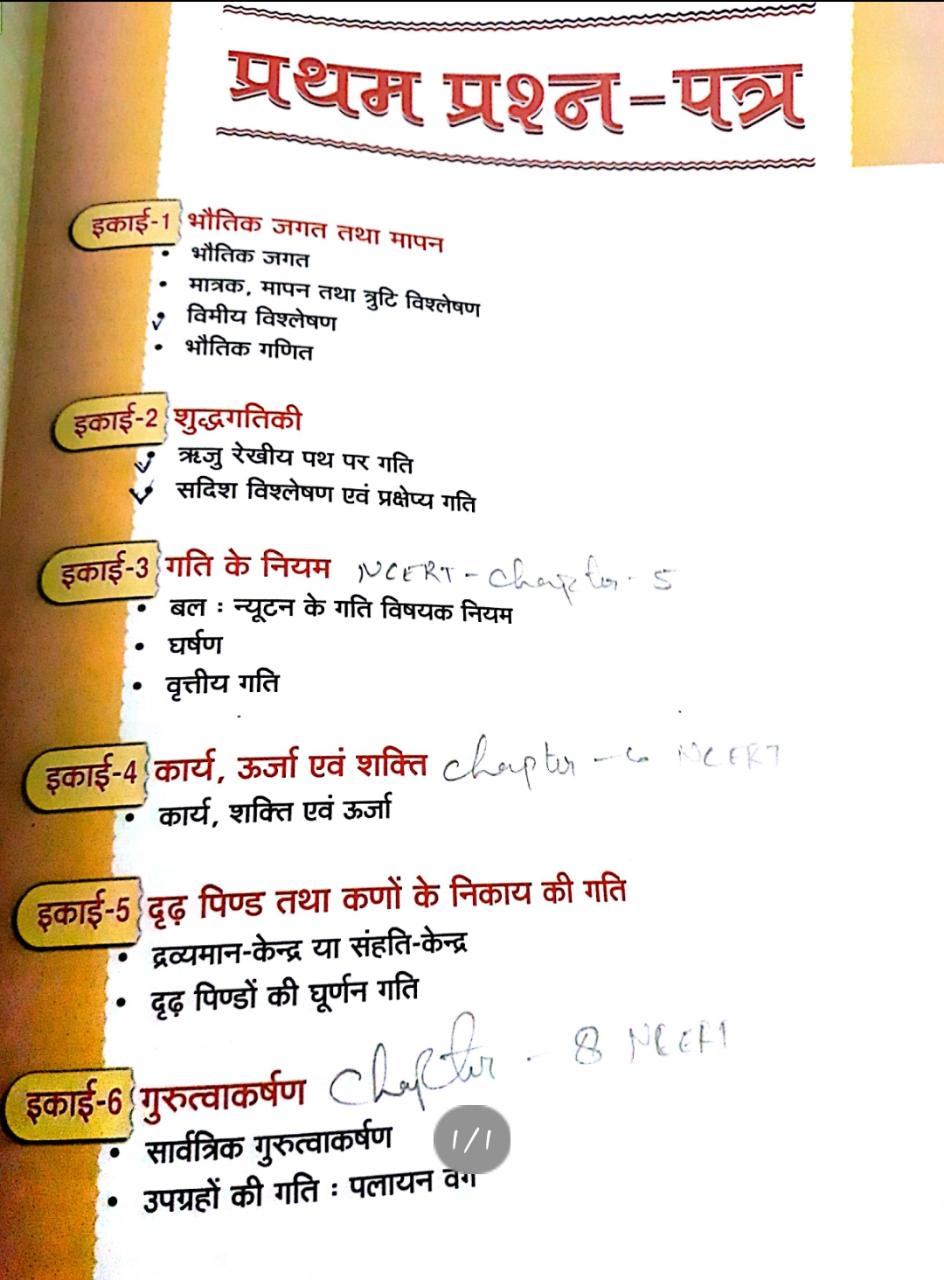 प्रथम प्रश्न-पत्र
इकाई-1 भौतिक जगत तथा मापन
• भौतिक जगत
• मात्रक, मापन तथा त्रुटि विश्लेषण
• विमीय विश्लेषण
• भौतिक गणित
इकाई-2 शुद्धगतिकी
• ऋजु रेखीय पथ पर गति
• सदिश विश्लेषण एवं प्रक्षेप्य गति
इकाई-3 गति के नियम NCERT - Chapter - 5
• बल : न्यूटन के गति विषयक नियम
• घर्षण
• वृत्तीय गति
इकाई-4 कार्य, ऊर्जा एवं शक्ति Chapter - 6 NCERT
• कार्य, शक्ति एवं ऊर्जा
इकाई-5 दृढ़ पिण्ड तथा कणों के निकाय की गति
• द्रव्यमान-केन्द्र या संहति-केन्द्र
• दृढ़ पिण्डों की घूर्णन गति
इकाई-6 गुरुत्वाकर्षण Chapter - 8 NCERT
• सार्वत्रिक गुरुत्वाकर्षण
1/1
• उपग्रहों की गति : पलायन वेग